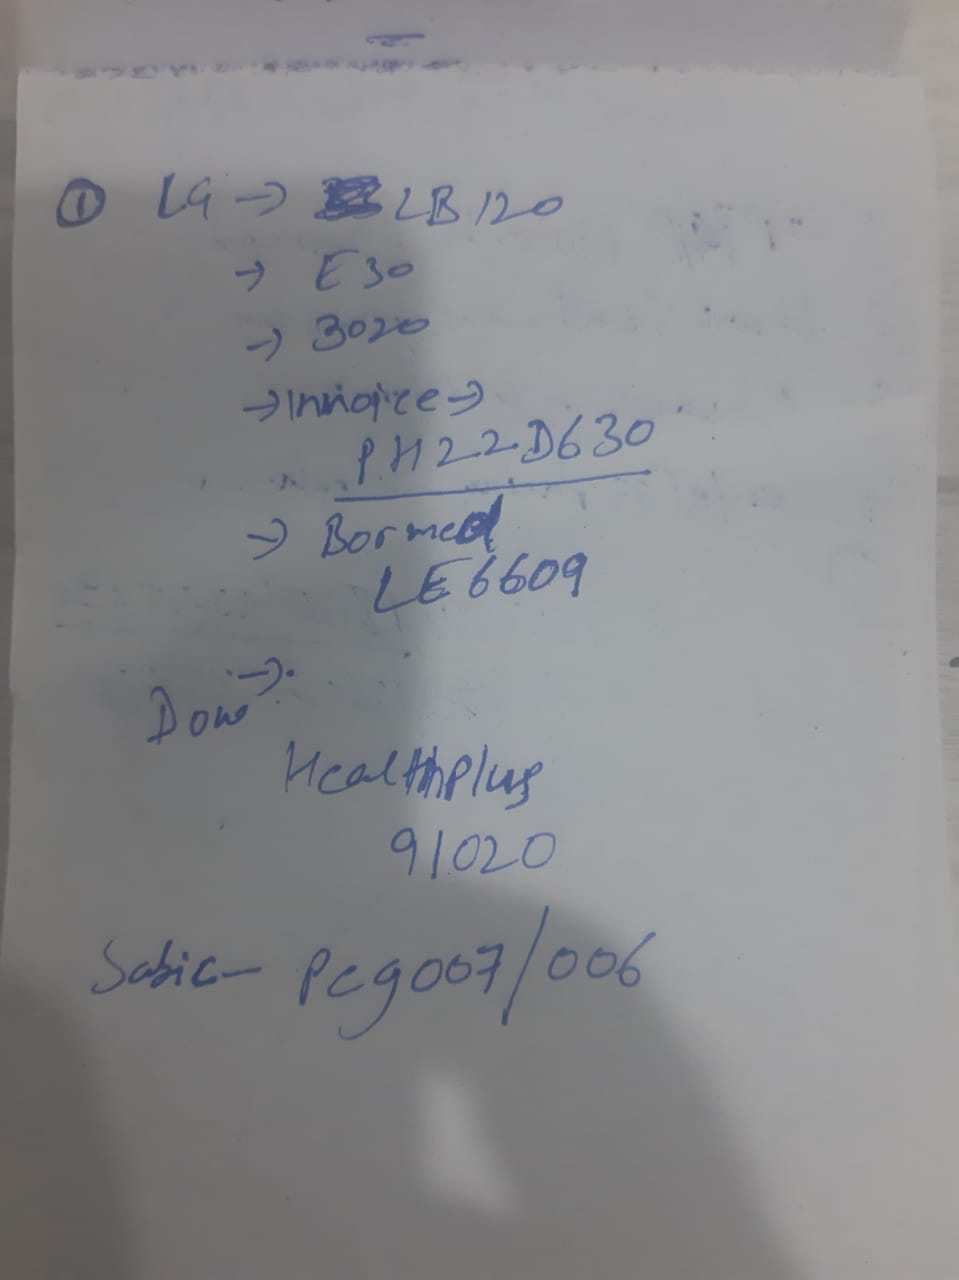 ① LG → LB 120
→ E30
→ 3020
→ Innoice →
PH22D630
→ Bormed
LE6609
Dow →
Healthplus
91020
Sabic - PCG007/006